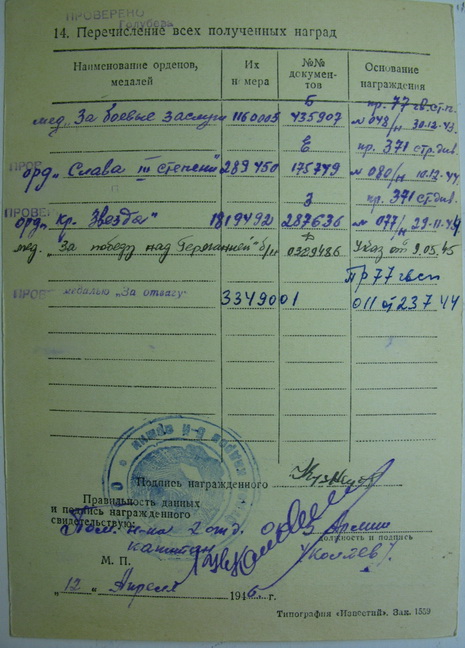 ПРОВЕРЕНО
Голубева
14. Перечисление всех полученных наград
Наименование орденов, медалей
Их номера
№№ документов
Основание награждения
мед. „За боевые заслуги 1160005 Б 435907 пр. 77 гв.ст.п. № 048/н 30.12.43
орд „Слава III степени" 289450 Е 175749 пр. 371 стр.див. № 080/н 10.12.44
орд „Кр. Звезды" 1819492 З 287636 пр. 371 ст.див. № 077/н 29.11.44
мед. „За победу над Германией" б/н 0329486 Указ от 9.05.45
медалью „За отвагу" 3349001 Пр 77 гвсп 011 от 23 7 44
Подпись награжденного
Правильность данных
и подпись награжденного
свидетельствую:
Пом. н-ка 2 отд. о 3 Армии
должность и подпись
капитан /Коляев/
М. П.
„12" Апреля 1946 г.
Типография «Известий». Зак. 1559